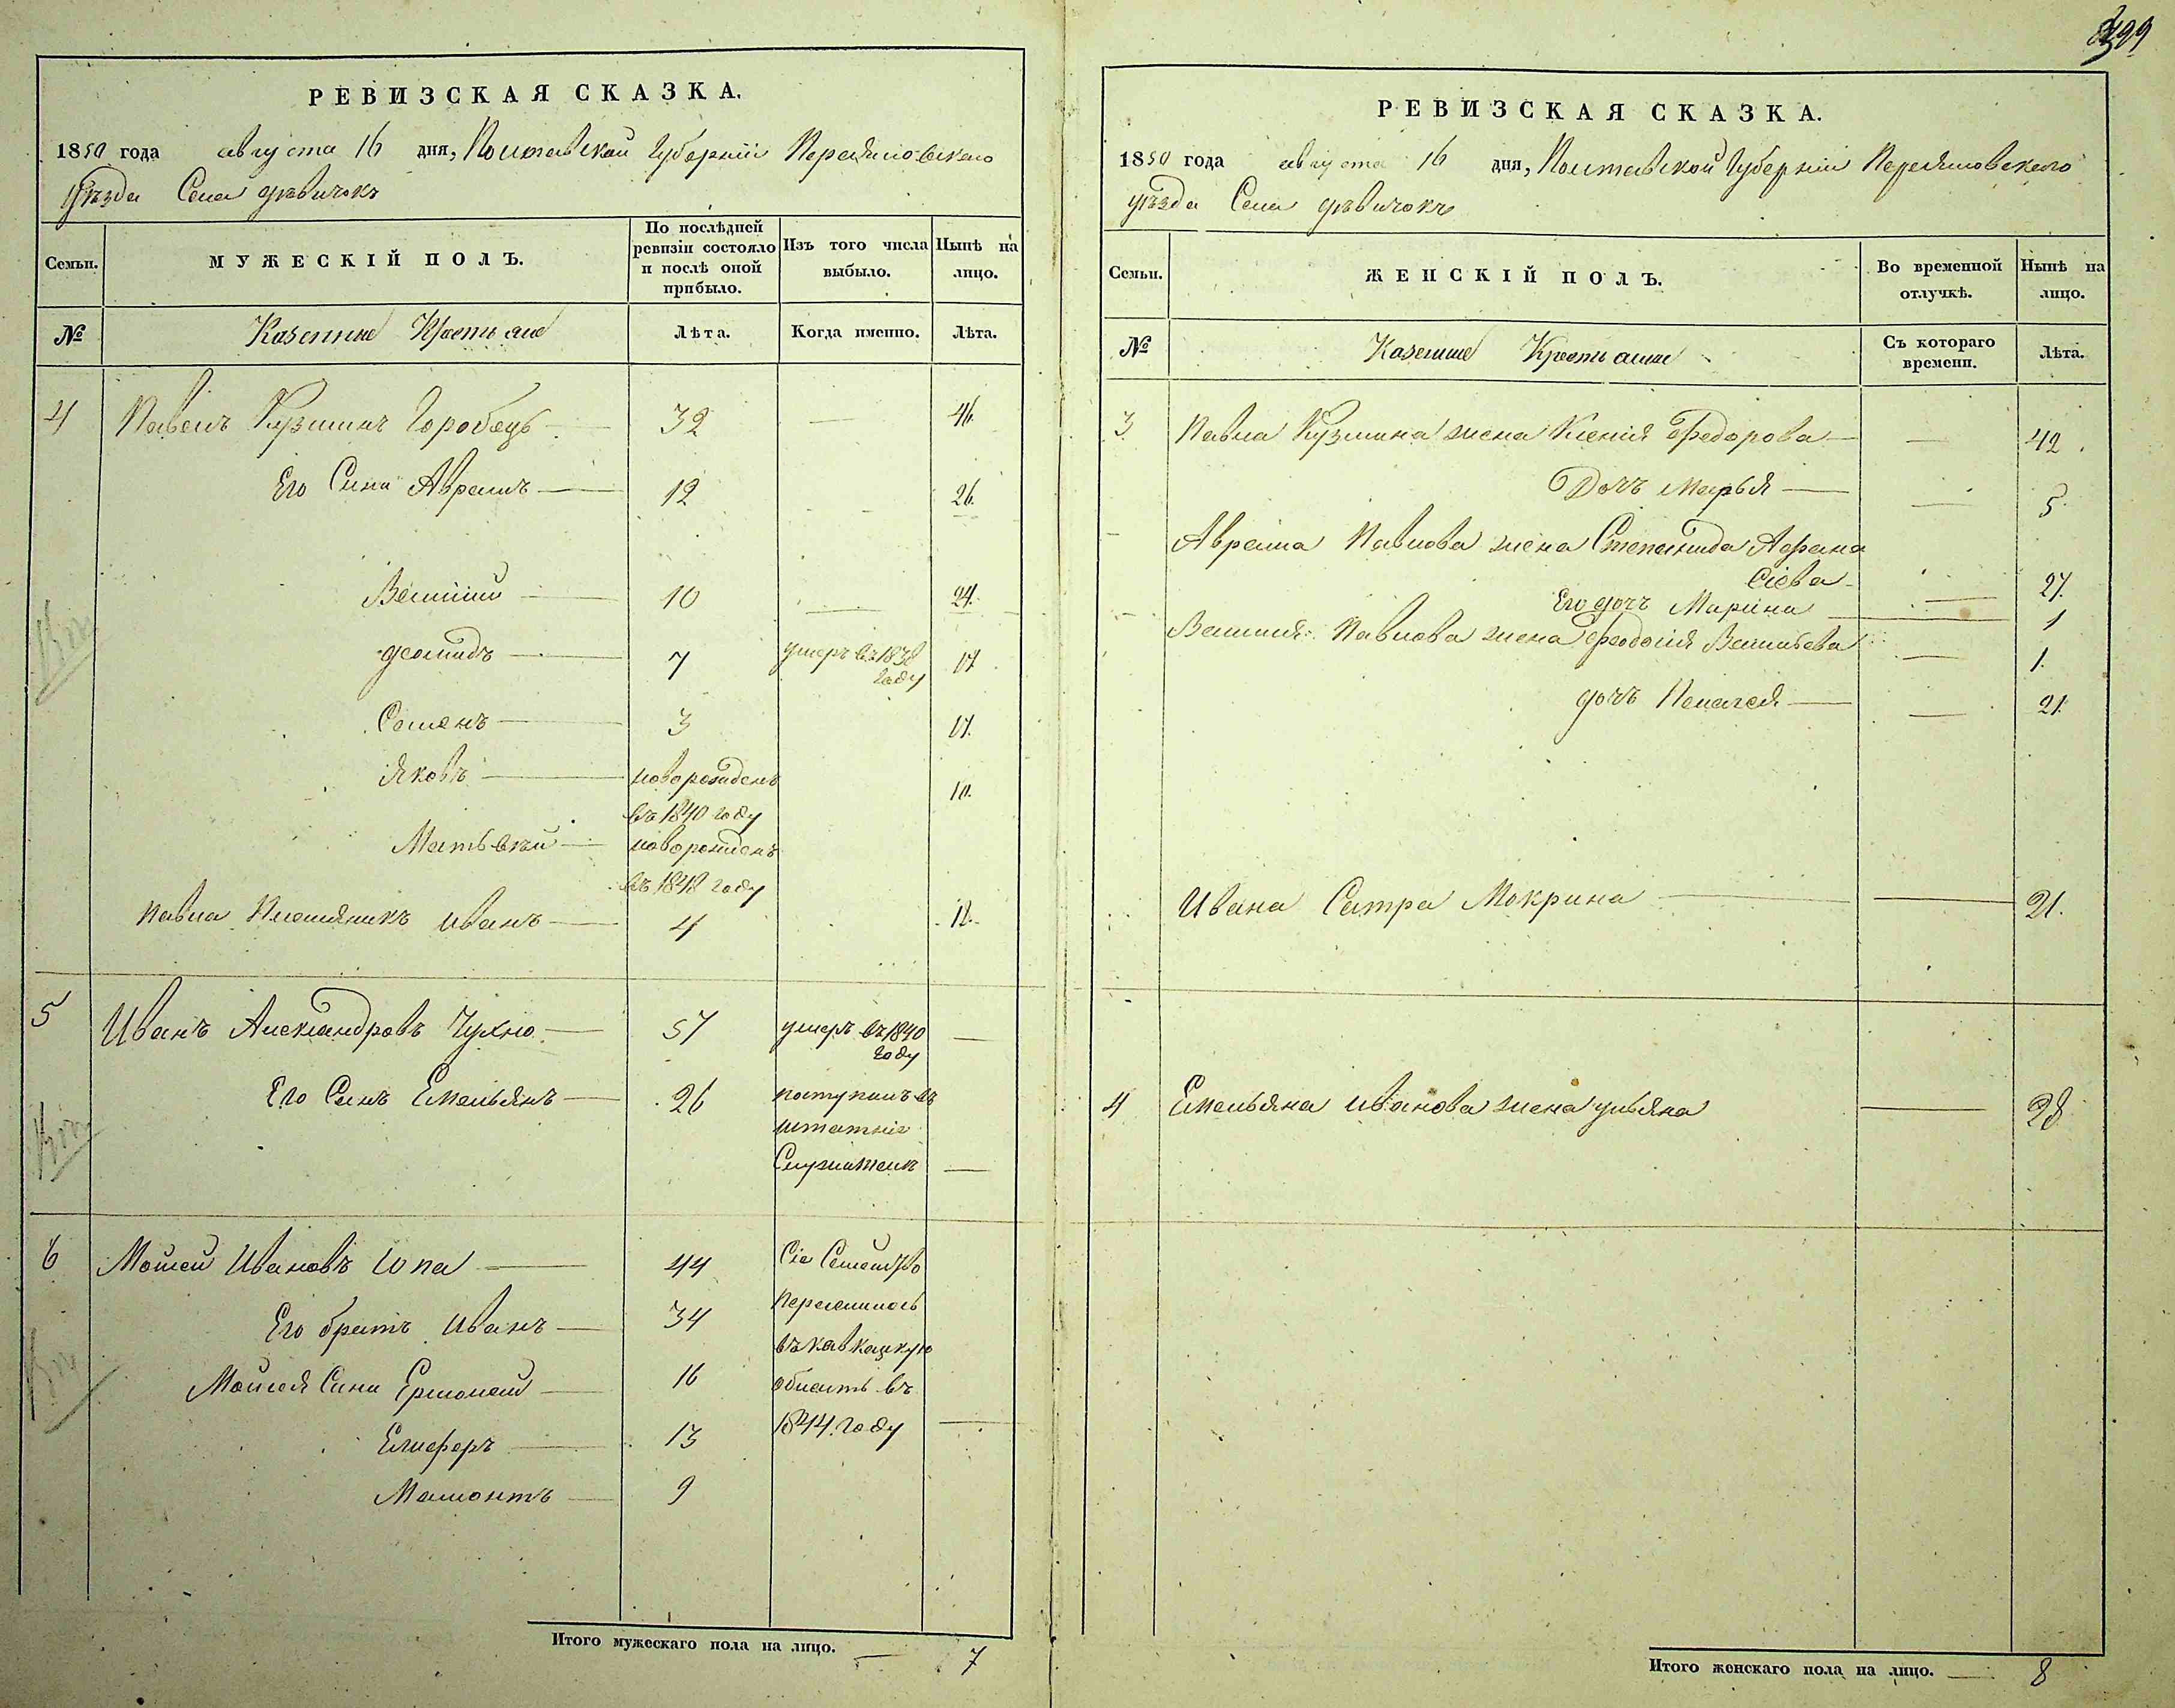 РЕВИЗСКАЯ СКАЗКА.
1850 года августа 16 дня, Полтавской Губерніи Переяславского
уѣзда Села Дѣвичокъ
Семьи.
МУЖЕСКІЙ ПОЛЪ.
По послѣдней ревизіи состояло и послѣ оной прибыло.
Изъ того числа выбыло.
Нынѣ на лицо.
№
Казенные Крестьяне
Лѣта.
Когда именно.
Лѣта.
4 Павелъ Кузминъ Горобець 32 — 46
Его Сини Аврамъ 12 26.
Василий 10 — 24.
Деомидъ 7 умеръ въ 1838 году 17.
Семенъ 3 17.
Яковъ новорожденъ въ 1840 году 10.
Матвѣй новорожденъ въ 1848 году
Павла Племяникъ Иванъ 4 18.
5 Иванъ Александровъ Чухно 57 умеръ въ 1840 году —
Его Синъ Емельянъ 26 поступилъ въ
штатніе
Служители —
6 Моисей Ивановъ Юпа 44 Сіе Семейство
Его братъ Иванъ 34 Переселилось
въ кавкацкую
Моисея Сини Ермолай 16 область въ
Елисферъ 13 1844 году —
Мамонтъ 9
Итого мужескаго пола на лицо. — 7
399
РЕВИЗСКАЯ СКАЗКА.
1850 года августа 16 дня, Полтавской Губерніи Переяславского
уѣзда Села Дѣвичокъ
Семьи.
ЖЕНСКІЙ ПОЛЪ.
Во временной отлучкѣ.
Нынѣ на лицо.
№
Казенные Крестьяне
Съ котораго времени.
Лѣта.
3. Павла Кузмина жена Ксенія Федорова — 42.
Дочъ Марья — 5.
Аврама Павлова жена Степанида Афана
сіева — 27.
Его дочъ Марина — 1
Василія Павлова жена Феодосія Васильева — 1.
дочъ Пелагея — 21.
Ивана Сестра Мокрина — 21.
4 Емельяна Иванова жена Ульяна — 28
Итого женскаго пола на лицо. — 8